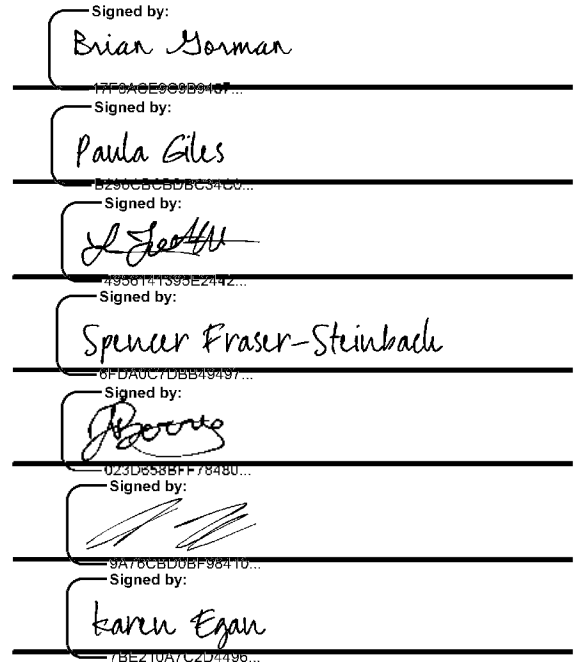 Signed by:
Brian Gorman
Signed by:
Paula Giles
Signed by:
4956141395E2442...
Signed by:
Spencer Fraser-Steinbach
6FDA0C7DBB49497...
Signed by:
023D658BFF78480...
Signed by:
9A76CBD0BF98410...
Signed by:
Karen Egan
7BE210A7C2D4496...